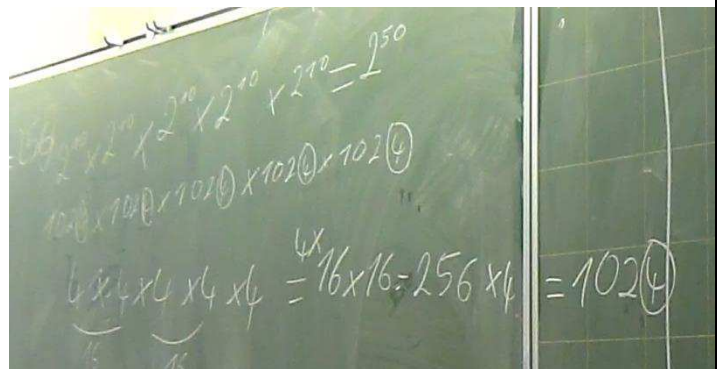 2¹⁰×2¹⁰×2¹⁰×2¹⁰×2¹⁰=2⁵⁰
1024×1024×1024×1024×1024
4×4×4×4×4 = 4×16×16=256×4 = 1024
16 16